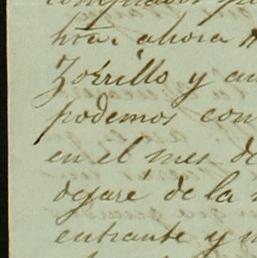 hta. ahora
Zorrillo y au
podemos con
en el mes de
dejaré de la
entrante y